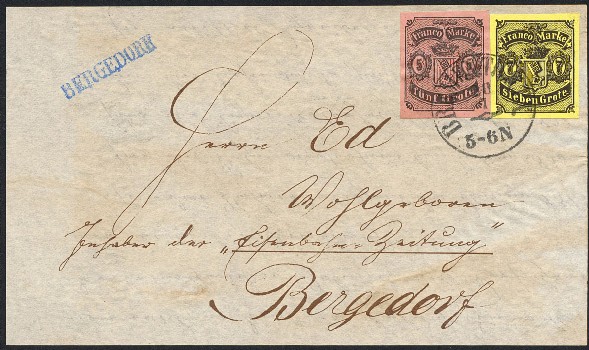 BERGEDORF
Franco Marke
5
Fünf Grote
Franco Marke
7 7
Sieben Grote
5-6N
Herrn Ed
Wohlgeboren
Inhaber der „Eisenbahn-Zeitung"
Bergedorf